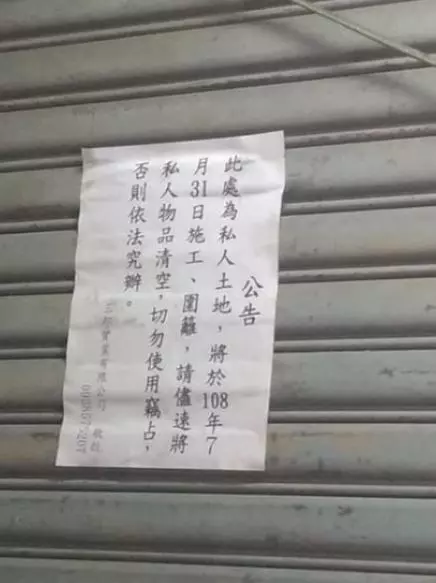 公告
此處為私人土地，將於108年7
月31日施工、圍籬，請儘速將
私人物品清空，切勿使用竊占，
否則依法究辦。
實業有限公司 敬啟